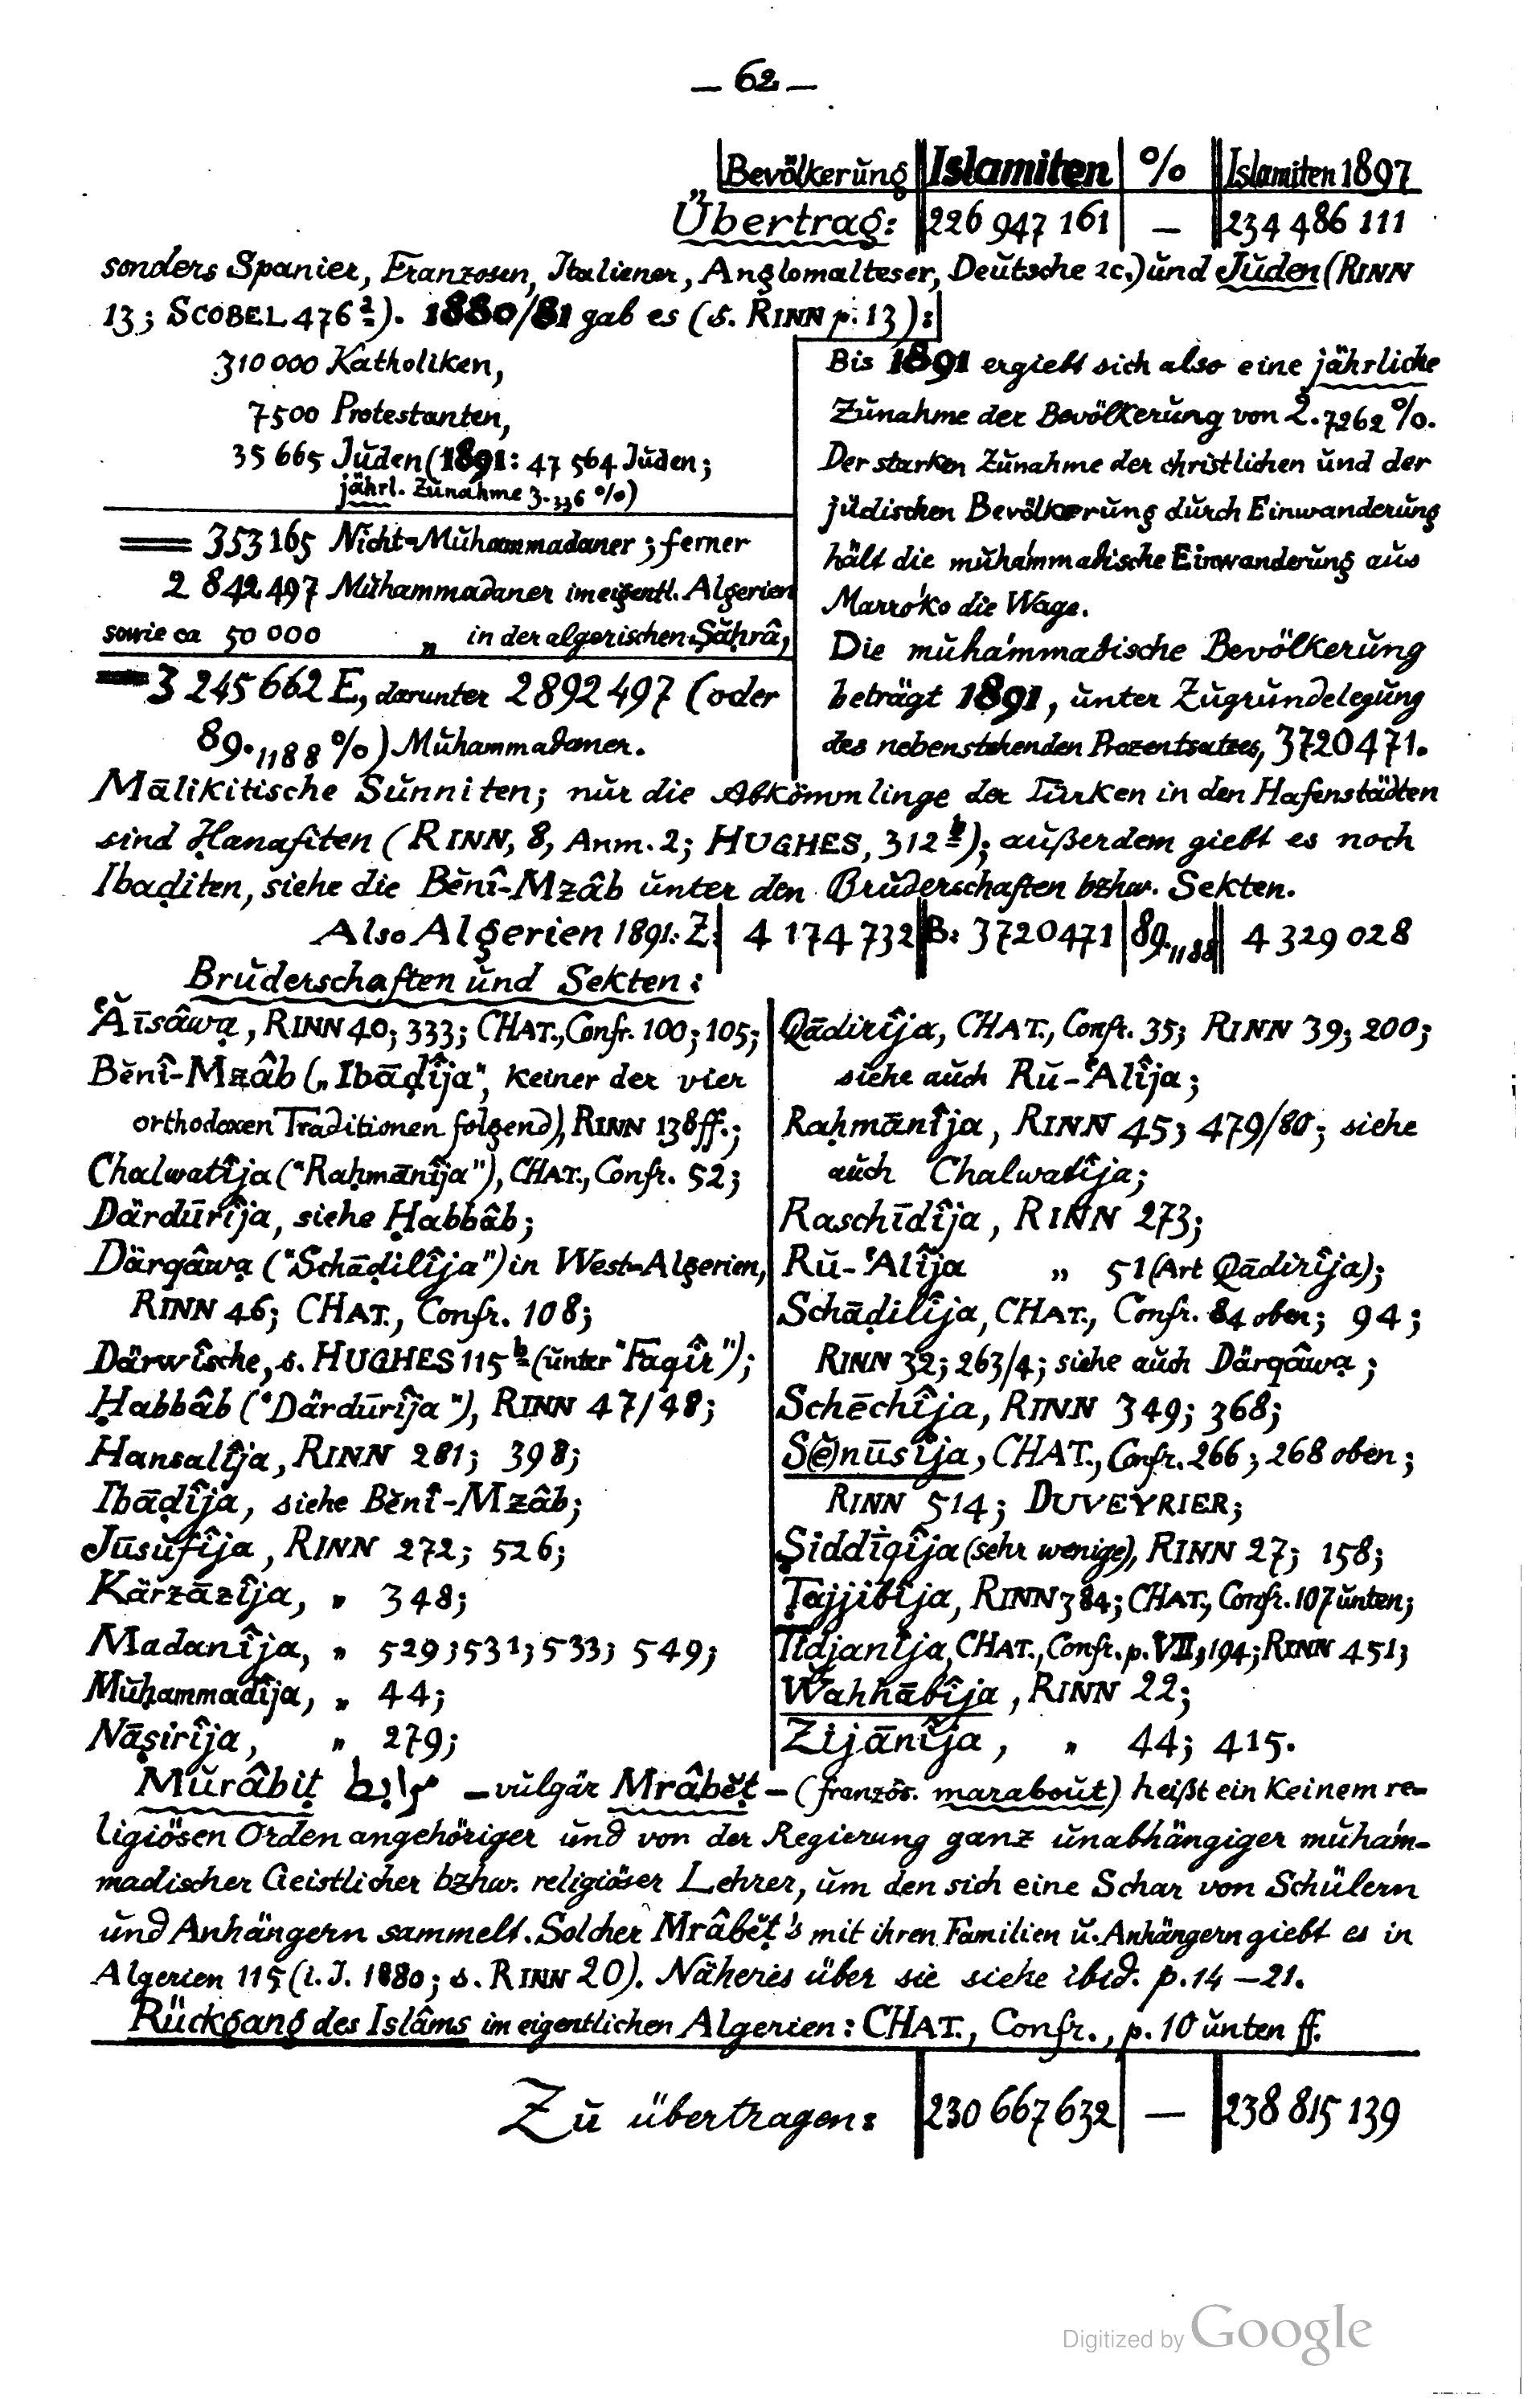 — 62 —
Bevölkerung Islamiten % Islamiten 1897
Übertrag: 226 947 161 — 234 486 111
sonders Spanier, Franzosen, Italiener, Anglomalteser, Deutsche 2c.) und Juden (RINN
13; SCOBEL 476 a). 1880/81 gab es (s. RINN p. 13):
310 000 Katholiken,
7500 Protestanten,
35 665 Juden (1891: 47 564 Juden;
jährl. Zunahme 3.336 %)
= 353 165 Nicht-Muhammadaner; ferner
2 842 497 Muhammadaner im eigentl. Algerien
sowie ca 50 000 „ in der algerischen Ṣaḥrâ,
= 3 245 662 E., darunter 2 892 497 (oder
89.1188 %) Muhammadaner.
Bis 1891 ergiebt sich also eine jährliche
Zunahme der Bevölkerung von 2.7262 %.
Der starken Zunahme der christlichen und der
jüdischen Bevölkerung durch Einwanderung
hält die muhámmadische Einwanderung aus
Marróko die Wage.
Die muhámmadische Bevölkerung
beträgt 1891, unter Zugrundelegung
des nebenstehenden Prozentsatzes, 3720471.
Mālikitische Sunniten; nur die Abkömmlinge der Türken in den Hafenstädten
sind Ḥanafiten (RINN, 8, Anm. 2; HUGHES, 312 b); außerdem giebt es noch
Ibaḍiten, siehe die Bĕnî-Mzâb unter den Bruderschaften bzhw. Sekten.
Also Algerien 1891: Z: 4 174 732 B: 3720471 89.1188 4 329 028
Bruderschaften und Sekten:
ʿĀīsâwạ, RINN 40; 333; CHAT., Confr. 100; 105;
Bĕnî-Mzâb („Ibāḍîja", keiner der vier
orthodoxen Traditionen folgend), RINN 138 ff.;
Chalwatîja ("Raḥmānîja"), CHAT., Confr. 52;
Därdūrîja, siehe Ḥabbâb;
Därqâwạ ("Schāḍilîja") in West-Algerien,
RINN 46; CHAT., Confr. 108;
Därwîsche, s. HUGHES 115 b (unter "Faqîr");
Ḥabbâb ("Därdūrîja"), RINN 47/48;
Hansalîja, RINN 281; 398;
Ibāḍîja, siehe Bĕnî-Mzâb;
Jūsufîja, RINN 272; 526;
Kärzāzîja, „ 348;
Madanîja, „ 529; 531; 533; 549;
Muḥammadîja, „ 44;
Nāṣirîja, „ 279;
Qādirîja, CHAT., Confr. 35; RINN 39; 200;
siehe auch Rŭ-ʿAlîja;
Raḥmānîja, RINN 45; 479/80; siehe
auch Chalwatîja;
Raschīdîja, RINN 273;
Rŭ-ʿAlîja „ 51 (Art Qādirîja);
Schāḍilîja, CHAT., Confr. 84 oben; 94;
RINN 32; 263/4; siehe auch Därqâwạ;
Schēchîja, RINN 349; 368;
S(ĕ)nūsîja, CHAT., Confr. 266; 268 oben;
RINN 514; DUVEYRIER;
Ṣiddīqîja (sehr wenige), RINN 27; 158;
Ṭajjibîja, RINN 384; CHAT., Confr. 107 unten;
Tīdjanîja, CHAT., Confr. p. VII; 194; RINN 451;
Wahhābîja, RINN 22;
Zijānîja, „ 44; 415.
Murâbiṭ مرابط — vulgär Mrâbĕṭ — (französ. marabout) heißt ein keinem re-
ligiösen Orden angehöriger und von der Regierung ganz unabhängiger muhám-
madischer Geistlicher bzhw. religiöser Lehrer, um den sich eine Schar von Schülern
und Anhängern sammelt. Solcher Mrâbĕṭ's mit ihren Familien u. Anhängern giebt es in
Algerien 115 (i. J. 1880; s. RINN 20). Näheres über sie siehe ibid. p. 14 — 21.
Rückgang des Islâms im eigentlichen Algerien: CHAT., Confr., p. 10 unten ff.
Zu übertragen: 230 667 632 — 238 815 139
Digitized by Google